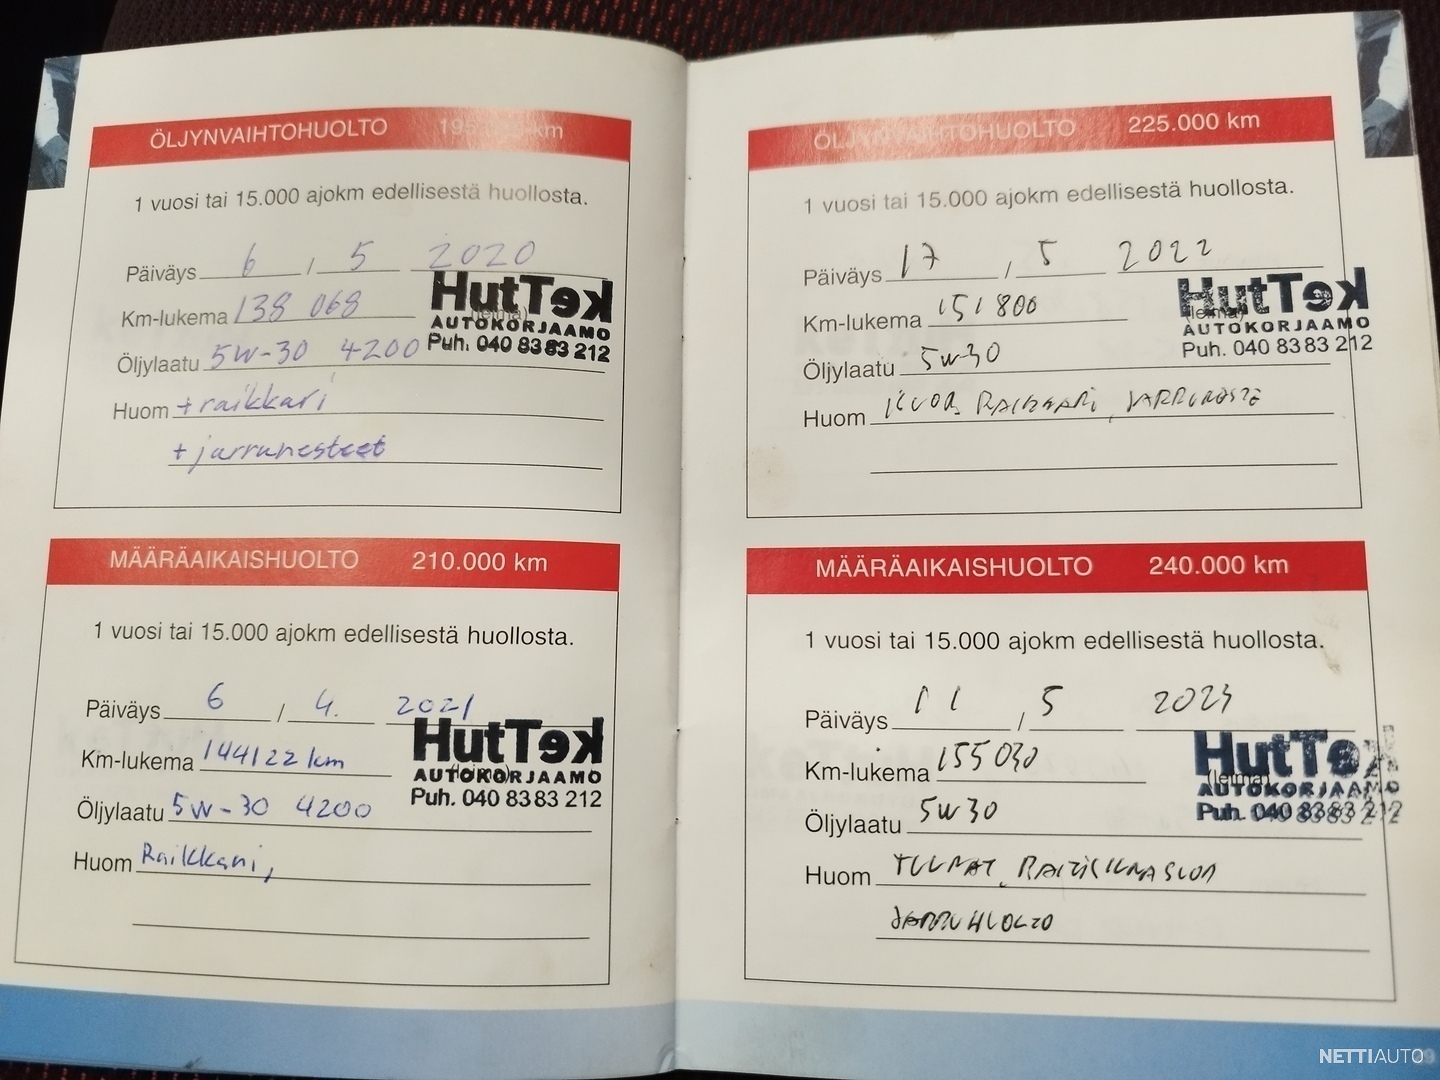 ÖLJYNVAIHTOHUOLTO km
1 vuosi tai 15.000 ajokm edellisestä huollosta.
Päiväys 6 / 5 2020
Km-lukema 138 068
(leima)
HutTek
AUTOKORJAAMO
Puh. 040 8383 212
Öljylaatu 5W-30 4200
Huom +raikkari
+ jarrunesteet
MÄÄRÄAIKAISHUOLTO 210.000 km
1 vuosi tai 15.000 ajokm edellisestä huollosta.
Päiväys 6 / 4. 2021
Km-lukema 144122 km
(leima)
HutTek
AUTOKORJAAMO
Puh. 040 8383 212
Öljylaatu 5W-30 4200
Huom Raikkari,
ÖLJYNVAIHTOHUOLTO 225.000 km
1 vuosi tai 15.000 ajokm edellisestä huollosta.
Päiväys 17 / 5 2022
Km-lukema 151800
(leima)
HutTek
AUTOKORJAAMO
Puh. 040 8383 212
Öljylaatu 5w30
Huom
MÄÄRÄAIKAISHUOLTO 240.000 km
1 vuosi tai 15.000 ajokm edellisestä huollosta.
Päiväys 11 / 5
Km-lukema 155030
(leima)
HutTek
AUTOKORJAAMO
Puh. 040 8383 212
Öljylaatu 5W30
Huom
JARRUHUOLTO
NETTIAUTO